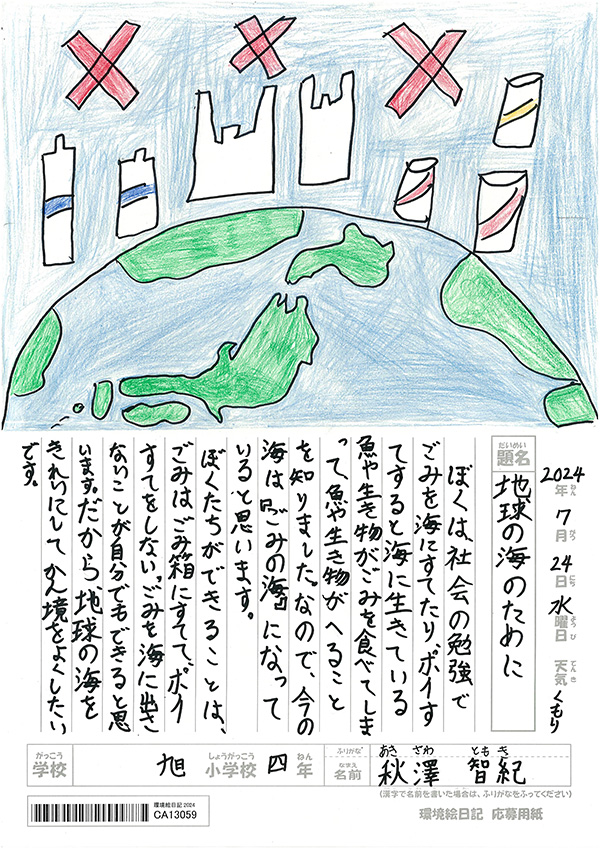 2024年ねん 7月がつ 24日にち 水曜日ようび 天気てんき くもり
だいめい
題名
地球の海のために
ぼくは、社会の勉強で
ごみを海にすてたりポイす
てすると海に生きている
魚や生き物がごみを食べてしま
って、魚や生き物がへること
を知りました。なので、今の
海は『ごみの海』になって
いると思います。
ぼくたちができることは、
ごみはごみ箱にすてて、ポイ
すてをしない。ごみを海に出さ
ないことが自分でもできると思
います。だから地球の海を
きれいにしてかん境をよくしたい
です。
がっこう
学校
旭 小学校 しょうがっこう 四年 ねん
ふりがな あきざわ ともき
なまえ
名前 秋澤 智紀
(漢字で名前を書いた場合は、ふりがなをふってください)
環境絵日記2024
CA13059
環境絵日記 応募用紙